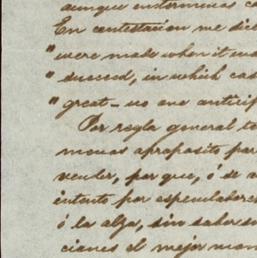 aunque enormemes ca
En contestacion me dice
" were made when it was
" succeed, in which cas
" great - no one anticip
Por regla general to
menos aproposito par
vender, por que, ó se
intento por especuladores
ó la alza, sin saber
ciones el mejor mom